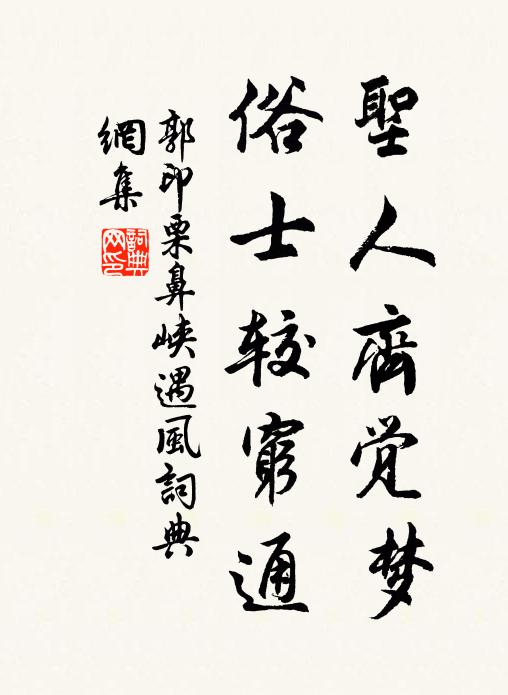 聖人齊觉梦
俗士较窮通
郭印栗鼻峡遇風詞典
網集
詞典
网印